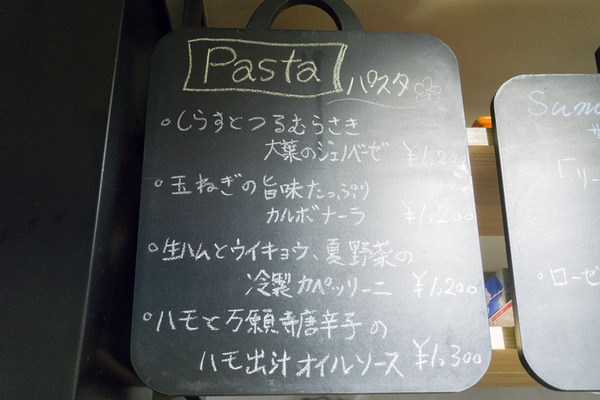 Pasta
パスタ
・しらすとつるむらさき
大葉のジェノベーゼ ¥1,200
・玉ねぎの旨味たっぷり
カルボナーラ ¥1,200
・生ハムとウイキョウ、夏野菜の
冷製カペッリーニ ¥1,200
・ハモと万願寺唐辛子の
ハモ出汁オイルソース ¥1,300
「リー
・ローゼ